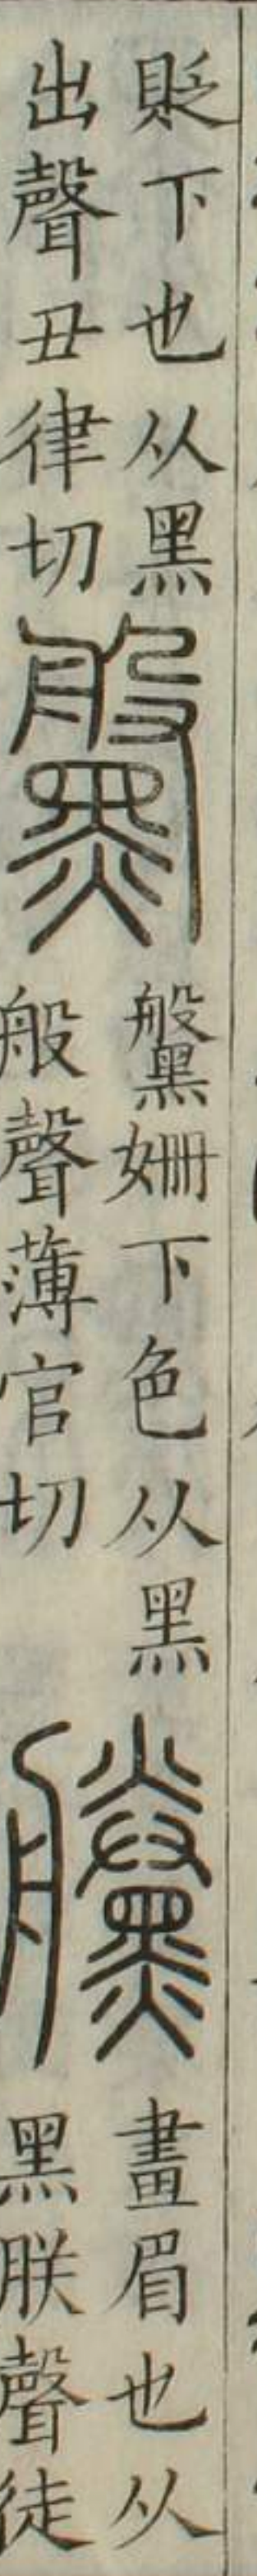 貶下也从黑
出聲丑律切
鬗
䰉姍下色从黑
般聲薄官切
黱
畫眉也从
黑朕聲徒